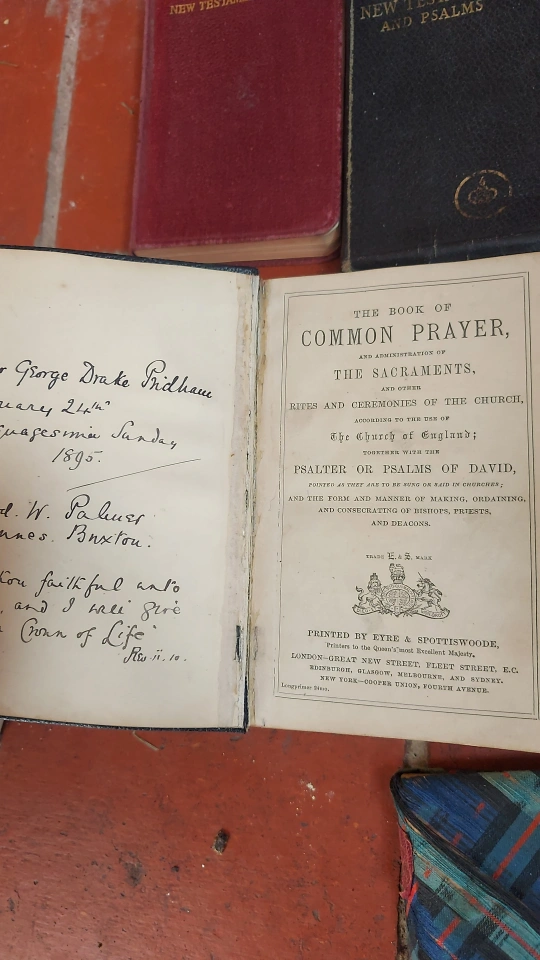 NEW TESTAM
NEW TESTA
AND PSALMS
r George Drake Pridham
uary 24th
quagesima Sunday
1895.
d. W. Palmer
nnes. Brixton.
thou faithful unto
, and I will give
Crown of Life"
Rev. ii. 10.
THE BOOK OF
COMMON PRAYER,
AND ADMINISTRATION OF
THE SACRAMENTS,
AND OTHER
RITES AND CEREMONIES OF THE CHURCH,
ACCORDING TO THE USE OF
The Church of England;
TOGETHER WITH THE
PSALTER OR PSALMS OF DAVID,
POINTED AS THEY ARE TO BE SUNG OR SAID IN CHURCHES;
AND THE FORM AND MANNER OF MAKING, ORDAINING,
AND CONSECRATING OF BISHOPS, PRIESTS,
AND DEACONS.
TRADE E. & S. MARK
PRINTED BY EYRE & SPOTTISWOODE,
Printers to the Queen's most Excellent Majesty.
LONDON—GREAT NEW STREET, FLEET STREET, E.C.
EDINBURGH, GLASGOW, MELBOURNE, AND SYDNEY.
NEW YORK—COOPER UNION, FOURTH AVENUE.
Longprimer 24mo.